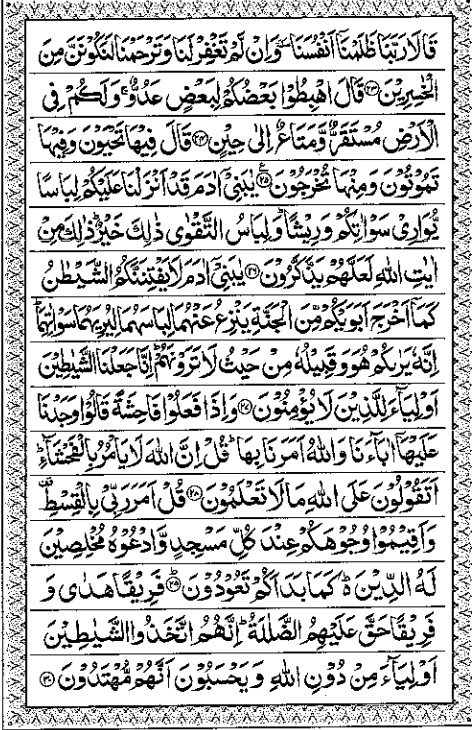 قَالَا رَبَّنَا ظَلَمْنَآ اَنْفُسَنَا ٚ وَاِنْ لَّمْ تَغْفِرْ لَنَا وَتَرْحَمْنَا لَنَكُوْنَنَّ مِنَ
الْخٰسِرِيْنَ ﴿۲۳﴾ قَالَ اهْبِطُوْا بَعْضُكُمْ لِبَعْضٍ عَدُوٌّ ۚ وَلَكُمْ فِى
الْاَرْضِ مُسْتَقَرٌّ وَّمَتَاعٌ اِلٰى حِيْنٍ ﴿۲۴﴾ قَالَ فِيْهَا تَحْيَوْنَ وَفِيْهَا
تَمُوْتُوْنَ وَمِنْهَا تُخْرَجُوْنَ ﴿۲۵﴾ يٰبَنِىْٓ اٰدَمَ قَدْ اَنْزَلْنَا عَلَيْكُمْ لِبَاسًا
يُّوَارِىْ سَوْاٰتِكُمْ وَرِيْشًا ؕ وَلِبَاسُ التَّقْوٰى ذٰلِكَ خَيْرٌ ؕ ذٰلِكَ مِنْ
اٰيٰتِ اللّٰهِ لَعَلَّهُمْ يَذَّكَّرُوْنَ ﴿۲۶﴾ يٰبَنِىْٓ اٰدَمَ لَا يَفْتِنَنَّكُمُ الشَّيْطٰنُ
كَمَآ اَخْرَجَ اَبَوَيْكُمْ مِّنَ الْجَنَّةِ يَنْزِعُ عَنْهُمَا لِبَاسَهُمَا لِيُرِيَهُمَا سَوْاٰتِهِمَا ؕ
اِنَّهٗ يَرٰىكُمْ هُوَ وَقَبِيْلُهٗ مِنْ حَيْثُ لَا تَرَوْنَهُمْ ؕ اِنَّا جَعَلْنَا الشَّيٰطِيْنَ
اَوْلِيَآءَ لِلَّذِيْنَ لَا يُؤْمِنُوْنَ ﴿۲۷﴾ وَاِذَا فَعَلُوْا فَاحِشَةً قَالُوْا وَجَدْنَا
عَلَيْهَآ اٰبَآءَنَا وَاللّٰهُ اَمَرَنَا بِهَا ؕ قُلْ اِنَّ اللّٰهَ لَا يَاْمُرُ بِالْفَحْشَآءِ ؕ
اَتَقُوْلُوْنَ عَلَى اللّٰهِ مَا لَا تَعْلَمُوْنَ ﴿۲۸﴾ قُلْ اَمَرَ رَبِّىْ بِالْقِسْطِ ۣ
وَاَقِيْمُوْا وُجُوْهَكُمْ عِنْدَ كُلِّ مَسْجِدٍ وَّادْعُوْهُ مُخْلِصِيْنَ
لَهُ الدِّيْنَ ؕ كَمَا بَدَاَكُمْ تَعُوْدُوْنَ ﴿۲۹﴾ فَرِيْقًا هَدٰى وَ
فَرِيْقًا حَقَّ عَلَيْهِمُ الضَّلٰلَةُ ؕ اِنَّهُمُ اتَّخَذُوا الشَّيٰطِيْنَ
اَوْلِيَآءَ مِنْ دُوْنِ اللّٰهِ وَيَحْسَبُوْنَ اَنَّهُمْ مُّهْتَدُوْنَ ﴿۳۰﴾